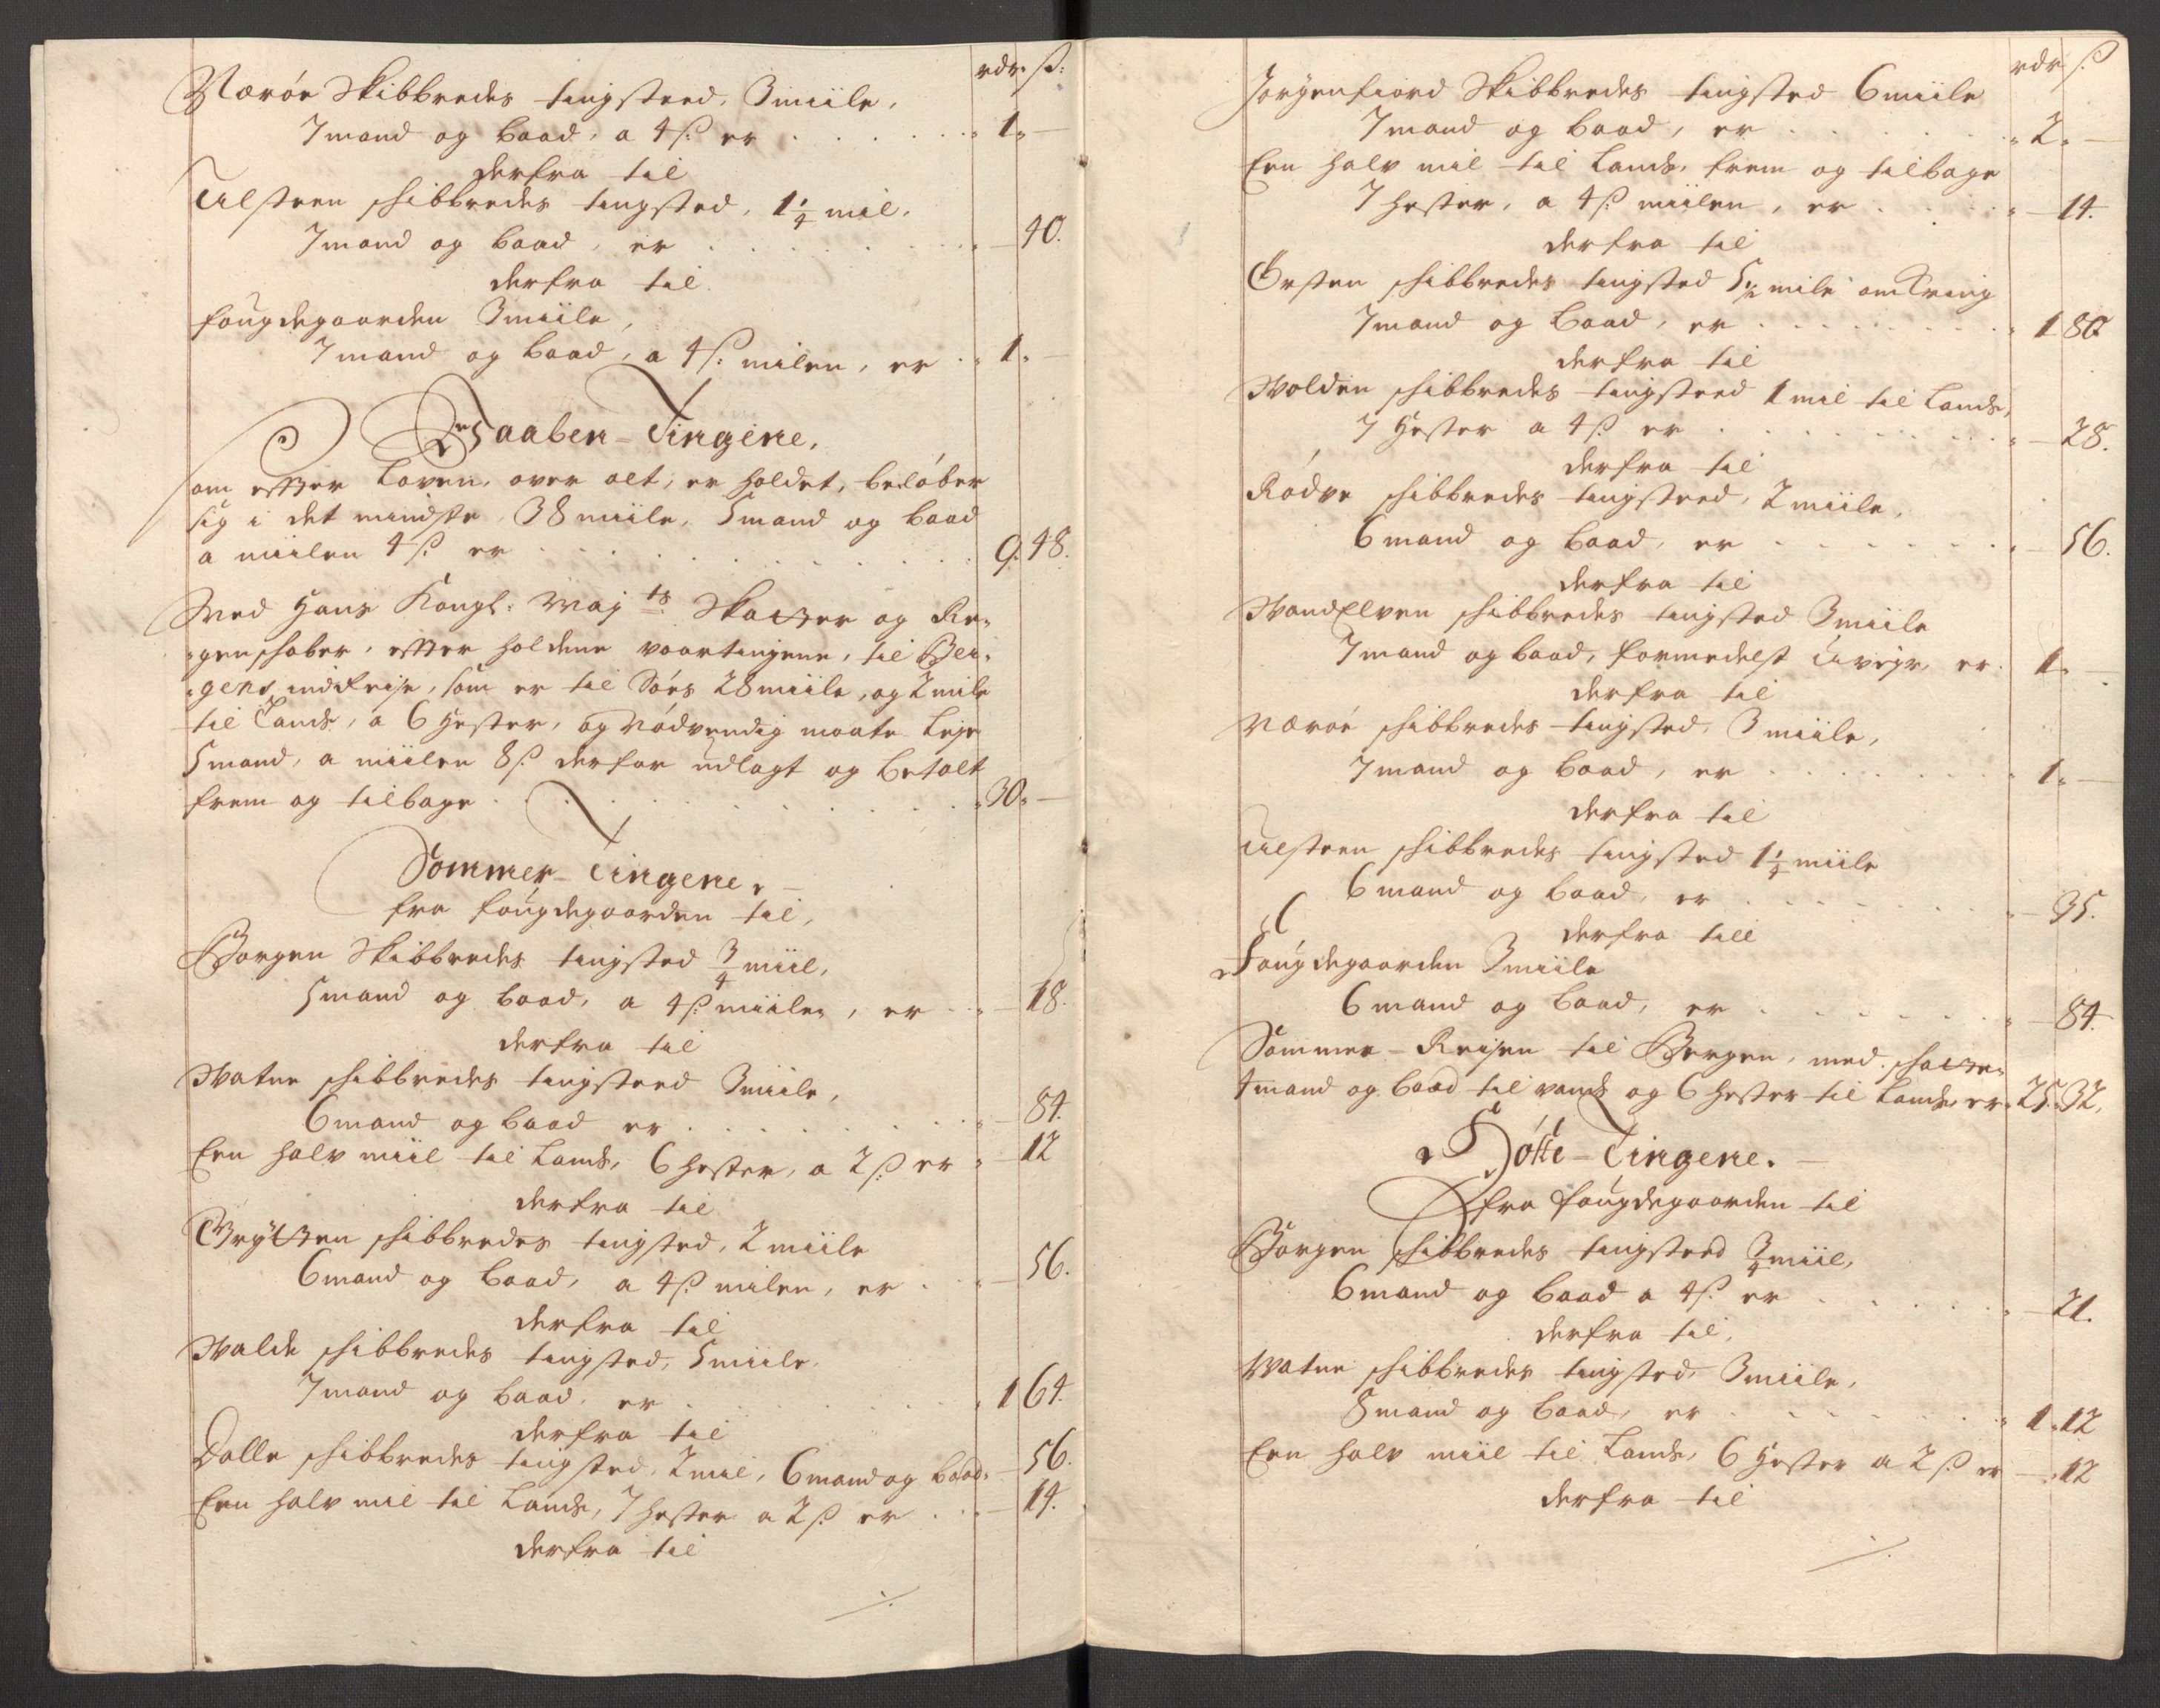 rdr. ß:
Nærøe Skibbredes tingsteed, 3 miile,
7 mand og baad, a 4 ß: er . . . . . . 1 " —
derfra til
Ulsteen schibbredes tingsted, 1 1/4 mil.
7 mand og baad, er . . . . . . " — 40.
derfra til
fougdegaarden 3 miile,
7 mand og baad, a 4 ß: milen, er . " 1 " —
Waaben-Tingene,
som efter Loven, over alt, er holdet, beløber
sig i det mindste, 38 miile, 5 mand og baad
a miilen 4 ß: er . . . . . . 9. 48.
Med Hans Kongl: May ts Skatter og Re-
genschaber, efter holdene vaartingene, til Ber-
gens indreise, som er til Søes 28 miile, og 2 mile
til Lands, a 6 Hester, og nødvendig maate leje
5 mand, a miilen 8 ß derfor udlagt og betalt
frem og tilbage . . . . . . " 30 " —
Sommer-Tingene,
fra fougdegaarden til,
Borgen Skibbredes tingsted 3/4 miil,
5 mand og baad, a 4 ß: miilen, er . . — 18.
derfra til
Watne schibbredes tingsteed 3 miile,
6 mand og baad er . . . . . . — 84.
Een halv miil til Lands, 6 hester, a 2 ß: er " — 12
derfra til
Grytten schibbredes tingsted, 2 miile
6 mand og baad, a 4 ß milen, er . . — 56.
derfra til
Walde schibbredes tingsted, 5 miile,
7 mand og baad, er . . . . . . 1 64.
derfra til
Dalle schibbredes tingsted, 2 mil, 6 mand og baad " — 56.
Een halv mil til Lands, 7 hester a 2 ß er . . . — 14.
derfra til
rdr ß
Jørgenfiord Skibbredes tingsted 6 miile
7 mand og baad, er . . . . . . " 2 " —
Een halv mil til Lands, frem og tilbage
7 hester, a 4 ß: miilen, er . . . . " — 14.
derfra til
Ørsten schibbredes tingsted 5 1/2 mile omkring
7 mand og baad, er . . . . . . 1 80
derfra til
Wolden schibbredes tingsteed 1 mil til Lands,
7 Hester a 4 ß er . . . . . . " — 28.
derfra til
Rødve schibbredes tingsteed, 2 miile,
6 mand og baad, er . . . . . . — 56.
derfra til
Wandelven schibbredes tingsted 3 miile
7 mand og baad, formedelst uvejr, er . 1 " —
derfra til
Nærøe schibbredes tingsted, 3 miile,
7 mand og baad, er . . . . . . 1 " —
derfra til
Ulsteen schibbredes tingsted 1 1/4 miile
6 mand og baad, er . . . . . . — 35.
derfra till
Fougdegaarden 3 miile
6 mand og baad, er . . . . . . — 84.
Sommer-Reisen til Bergen, med schatte,
4 mand og baad til vands og 6 hester til Lands, er " 25 " 32.
Høste-Tingene.
fra fougdegaarden til
Borgen schibbredes tingsteed 3/4 miil,
6 mand og baad a 4 ß er . . . . . — 21.
derfra til,
Watne schibbredes tingsted, 3 miile,
8 mand og baad, er . . . . . . 1 " 12
Een halv miil til Lands, 6 Hester a 2 ß er — " 12
derfra til